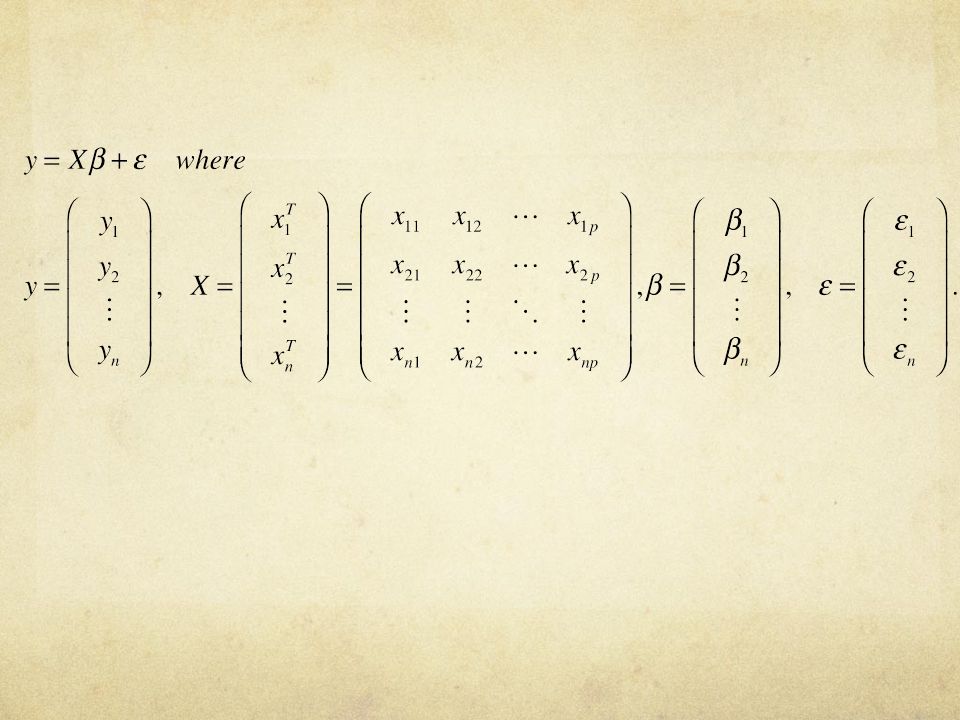 y = Xβ + ε where
y = \begin{pmatrix} y_1 \\ y_2 \\ \vdots \\ y_n \end{pmatrix}, X = \begin{pmatrix} x_1^T \\ x_2^T \\ \vdots \\ x_n^T \end{pmatrix} = \begin{pmatrix} x_{11} & x_{12} & \cdots & x_{1p} \\ x_{21} & x_{22} & \cdots & x_{2p} \\ \vdots & \vdots & \ddots & \vdots \\ x_{n1} & x_{n2} & \cdots & x_{np} \end{pmatrix}, β = \begin{pmatrix} β_1 \\ β_2 \\ \vdots \\ β_n \end{pmatrix}, ε = \begin{pmatrix} ε_1 \\ ε_2 \\ \vdots \\ ε_n \end{pmatrix}.